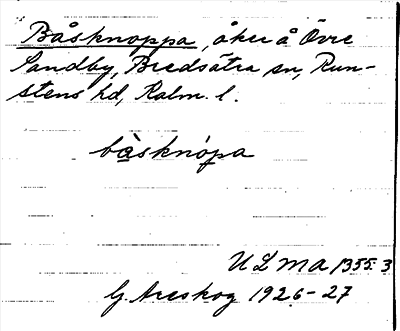 Båsknoppa, åker å Övre
Sandby, Bredsätra sn, Run-
stens hd, Kalm. l.
bàsknòpa
ULMA 1355:3
G. Areskog 1926-27